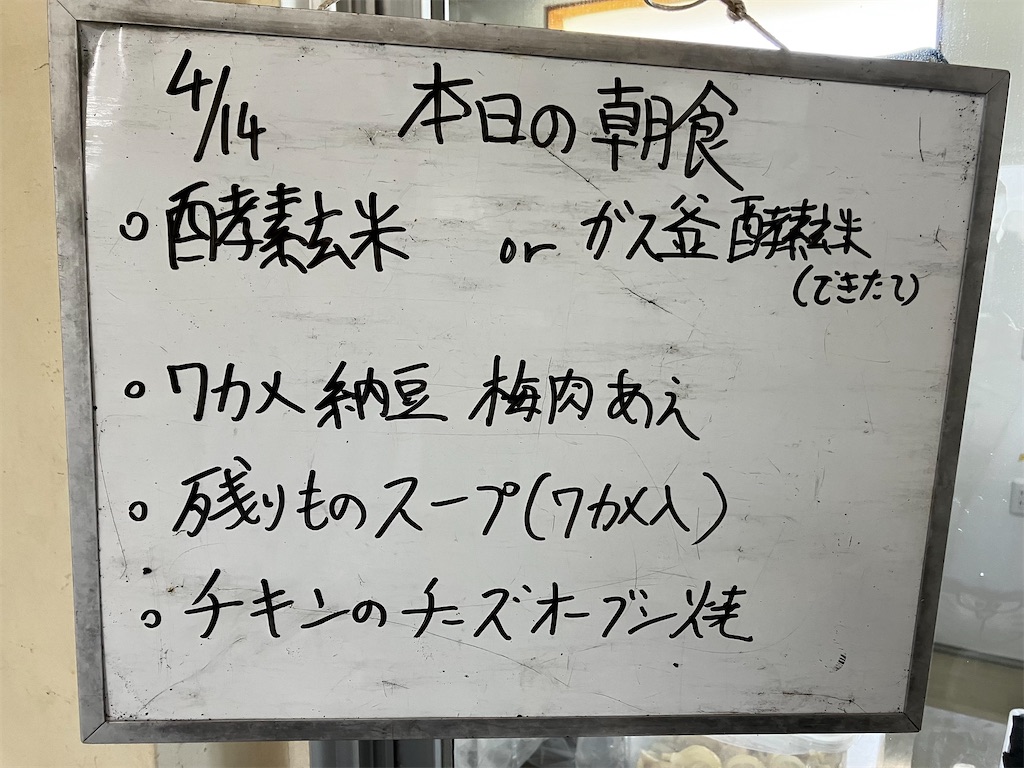 4/14 本日の朝食
○酵素玄米 or ガス釜酵素玄米
(できたて)
○ワカメ納豆 梅肉あえ
○残りものスープ(ワカメ入)
○チキンのチーズオーブン焼